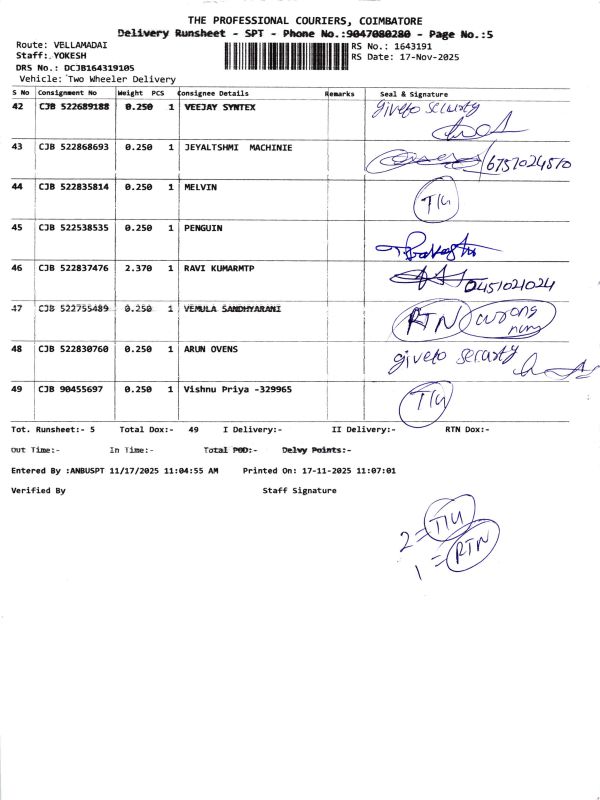 THE PROFESSIONAL COURIERS, COIMBATORE
Delivery Runsheet - SPT - Phone No.:9047080280 - Page No.:5
Route: VELLAMADAI RS No.: 1643191
Staff: YOKESH RS Date: 17-Nov-2025
DRS No.: DCJB164319105
Vehicle: Two Wheeler Delivery
S No Consignment No Weight PCS Consignee Details Remarks Seal & Signature
42 CJB 522689188 0.250 1 VEEJAY SYNTEX giveto security
43 CJB 522868693 0.250 1 JEYALTSHMI MACHINIE 6757024510
44 CJB 522835814 0.250 1 MELVIN
45 CJB 522538535 0.250 1 PENGUIN
46 CJB 522837476 2.370 1 RAVI KUMARMTP 0451021024
47 CJB 522755489 0.250 1 VEMULA SANDHYARANI RTN wrong
48 CJB 522830760 0.250 1 ARUN OVENS giveto security
49 CJB 90455697 0.250 1 Vishnu Priya -329965
Tot. Runsheet:- 5 Total Dox:- 49 I Delivery:- II Delivery:- RTN Dox:-
Out Time:- In Time:- Total POD:- Delvy Points:-
Entered By :ANBUSPT 11/17/2025 11:04:55 AM Printed On: 17-11-2025 11:07:01
Verified By Staff Signature
2 =
1 = RTN